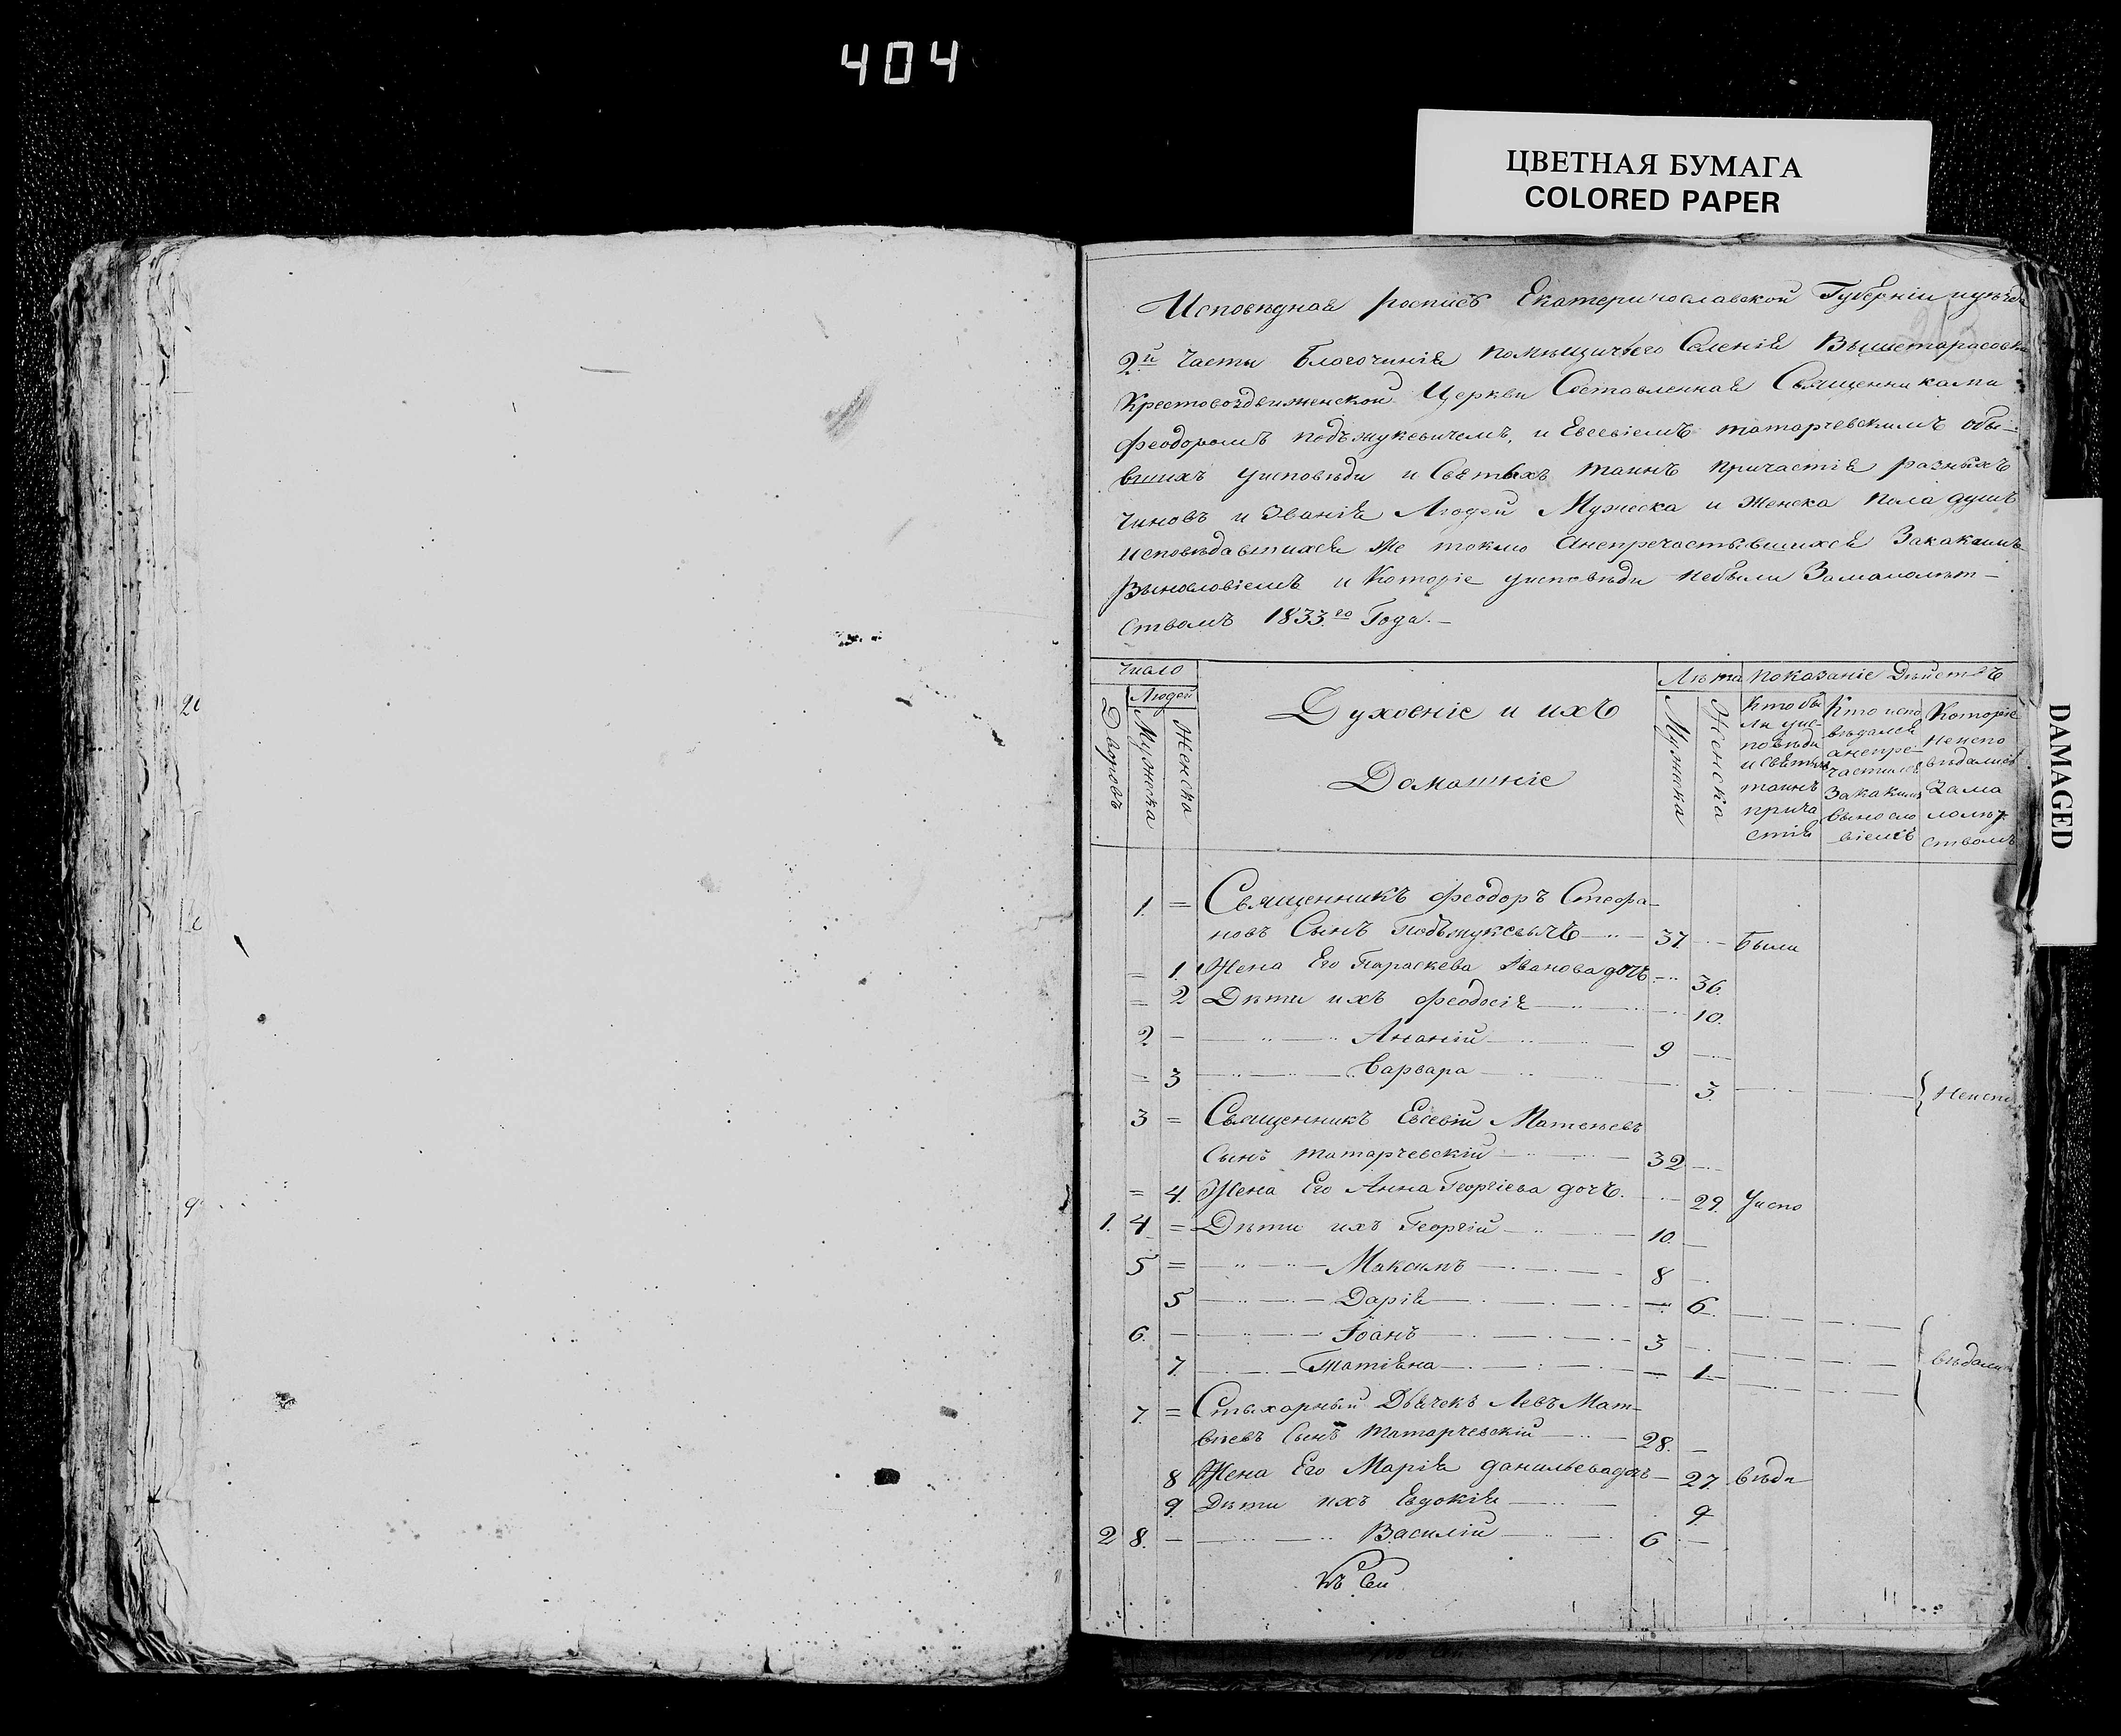 404
ЦВЕТНАЯ БУМАГА
COLORED PAPER
DAMAGED
Исповѣдная роспись Екатеринославской Губерніи
2й Части Благочинія помѣщичьего Селенія Вышетарасовки
Крестовоздвиженской Церкви Составленная Священниками
Феодоромъ подъжукевичемъ, и Евсевіемъ татарчевскимъ обы-
вшихъ уисповѣди и Святыхъ таинъ причастія разныхъ
чиновъ и Званія Людей Мужеска и Женска пола душъ
исповѣдавшихся же токмо анепречастывшихся Закакимъ
Вынословіемъ и Которіе уисповѣди небыли Замалолѣт-
ствомъ 1833го Года.-
Число
Людей
Дворовъ
Мужеска
Женска
Духовніе и ихъ
Домашніе
Лѣта
Мужска
Женска
показаніе Дѣйствъ
Кто бы
ли уис-
повѣди
и святихъ
таинъ
прича
стія
Кто испо
вѣдался
анепре-
частился
Закакимъ
выносло
віемъ
Которіе
неиспо
вѣдались
Зама
лолѣт
ствомъ
1. = Священникъ Феодоръ Стефа-
новъ Сынъ подъжукевычъ 37. Были
= 1. Жена Его Параскева Іванова дочь 36.
= 2 Дѣти ихъ Феодосія 10.
2. - Ананій 9
= 3 Варвара 3. Неиспо
3 = Священникъ Евсевій Матвѣевъ
Сынъ татарчевскій 32
= 4. Жена Его Анна Георгіева дочь. 29. Уиспо
1. 4 = Дѣти ихъ Георгій 10.
5 = Максимъ 8
5 Дарія 6.
6. - Іоанъ 3
7. Татіяна 1. вѣдались
7. = Стыхарный Дьячекъ Левъ Мат-
вѣевъ Сынъ татарчевскій 28.
8 Жена Его Марія данильева дочь 27. вѣди
9. Дѣти ихъ Евдокія 9.
2 8. - Василій 6
Къ Сей